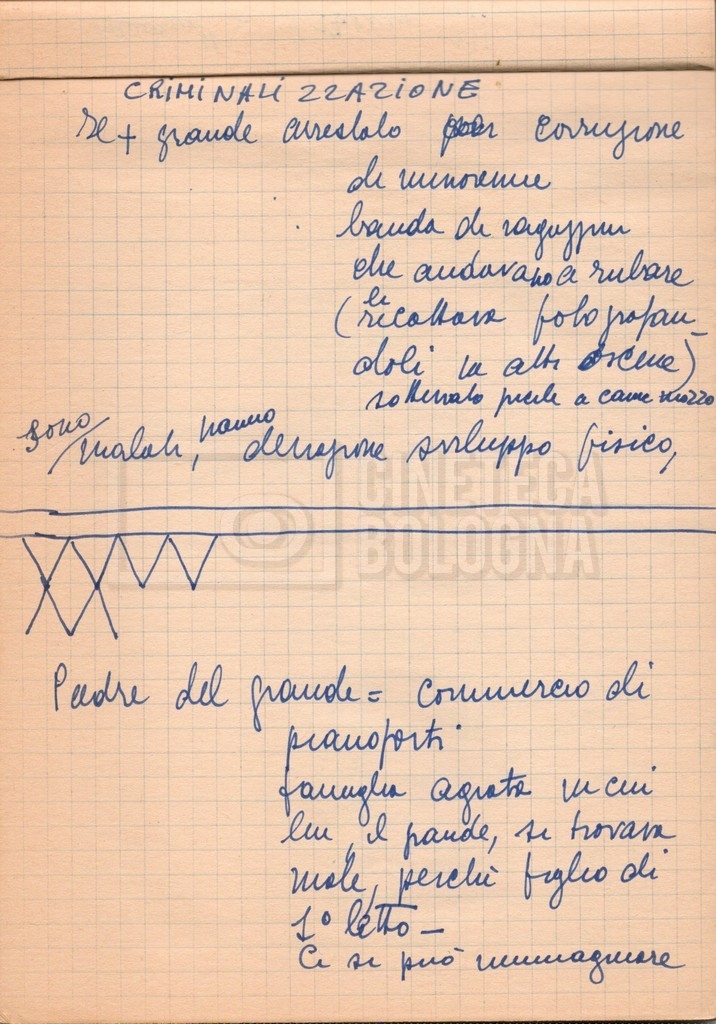 CRIMINALIZZAZIONE
Il + grande arrestato per corruzione
di minorenne
banda di ragazzini
che andavano a rubare
le
(ricattava fotografan
doli in atti oscene)
sotterrato piede a came mozzo
sono
malati, hanno deviazione sviluppo fisico,
CINETECA
BOLOGNA
Padre del grande = commercio di
pianoforti.
famiglia agiata in cui
lui, il grande, si trovava
male, perchè figlio di
1° letto —
Ce si può immaginare